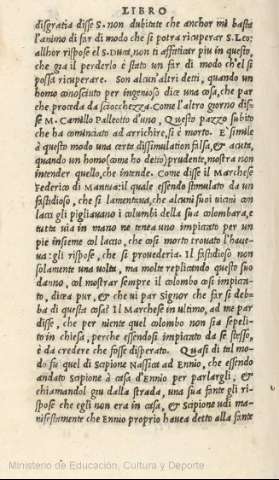 LIBRO
disgratia disse S. non dubitate che anchor mi basta
l'animo di far di modo che si potra ricuperar S. Leo:
allhor rispose el S. Duca, non ti affaticar piu in questo,
che gia il perderlo è stato un far di modo ch'el si
possa ricuperare. Son alcun'altri detti, quando un
homo conosciuto per ingenioso dice una cosa, che par
che proceda da sciocchezza. Come l'altro giorno dis/
se M. Camillo Palleotto d'uno, Questo pazzo subito
che ha cominciato ad arrichire, si è morto. E' simile
à questo modo una certa dissimulation falsa, & acuta,
quando un homo (come ho detto) prudente, mostra non
intender quello, che intende. Come disse il Marchese
Federico di Mantua: il quale essendo stimulato da un
fastidioso, che si lamentava, che alcuni suoi vicini con
lacci gli pigliavano i columbi della sua colombara, e
tutta via in mano ne tenea uno impicato per un
pie insieme col laccio, che cosi morto trovato l'haue-
va: gli rispose, che si provederia. Il fastidioso non
solamente una volta, ma molte replicando questo suo
danno, col mostrar sempre il colombo cosi impicca-
to, dicea pur, & che vi par Signor che far si deb-
ba di questa cosa? Il Marchese in ultimo, ad me par
disse, che per niente quel colombo non sia sepeli-
to in chiesa, perche essendosi impicato da se stesso,
è da credere che fosse disperato. Quasi di tal mo-
do fu quel di Scipione Nassica ad Ennio, che essendo
andato Scipione à casa d'Ennio per parlargli, &
chiamandol giu dalla strada, una sua fante gli ri-
spose che egli non era in casa, & Scipione udi ma-
nifestamente che Ennio proprio havea detto alla fante
Ministerio de Educación, Cultura y Deporte